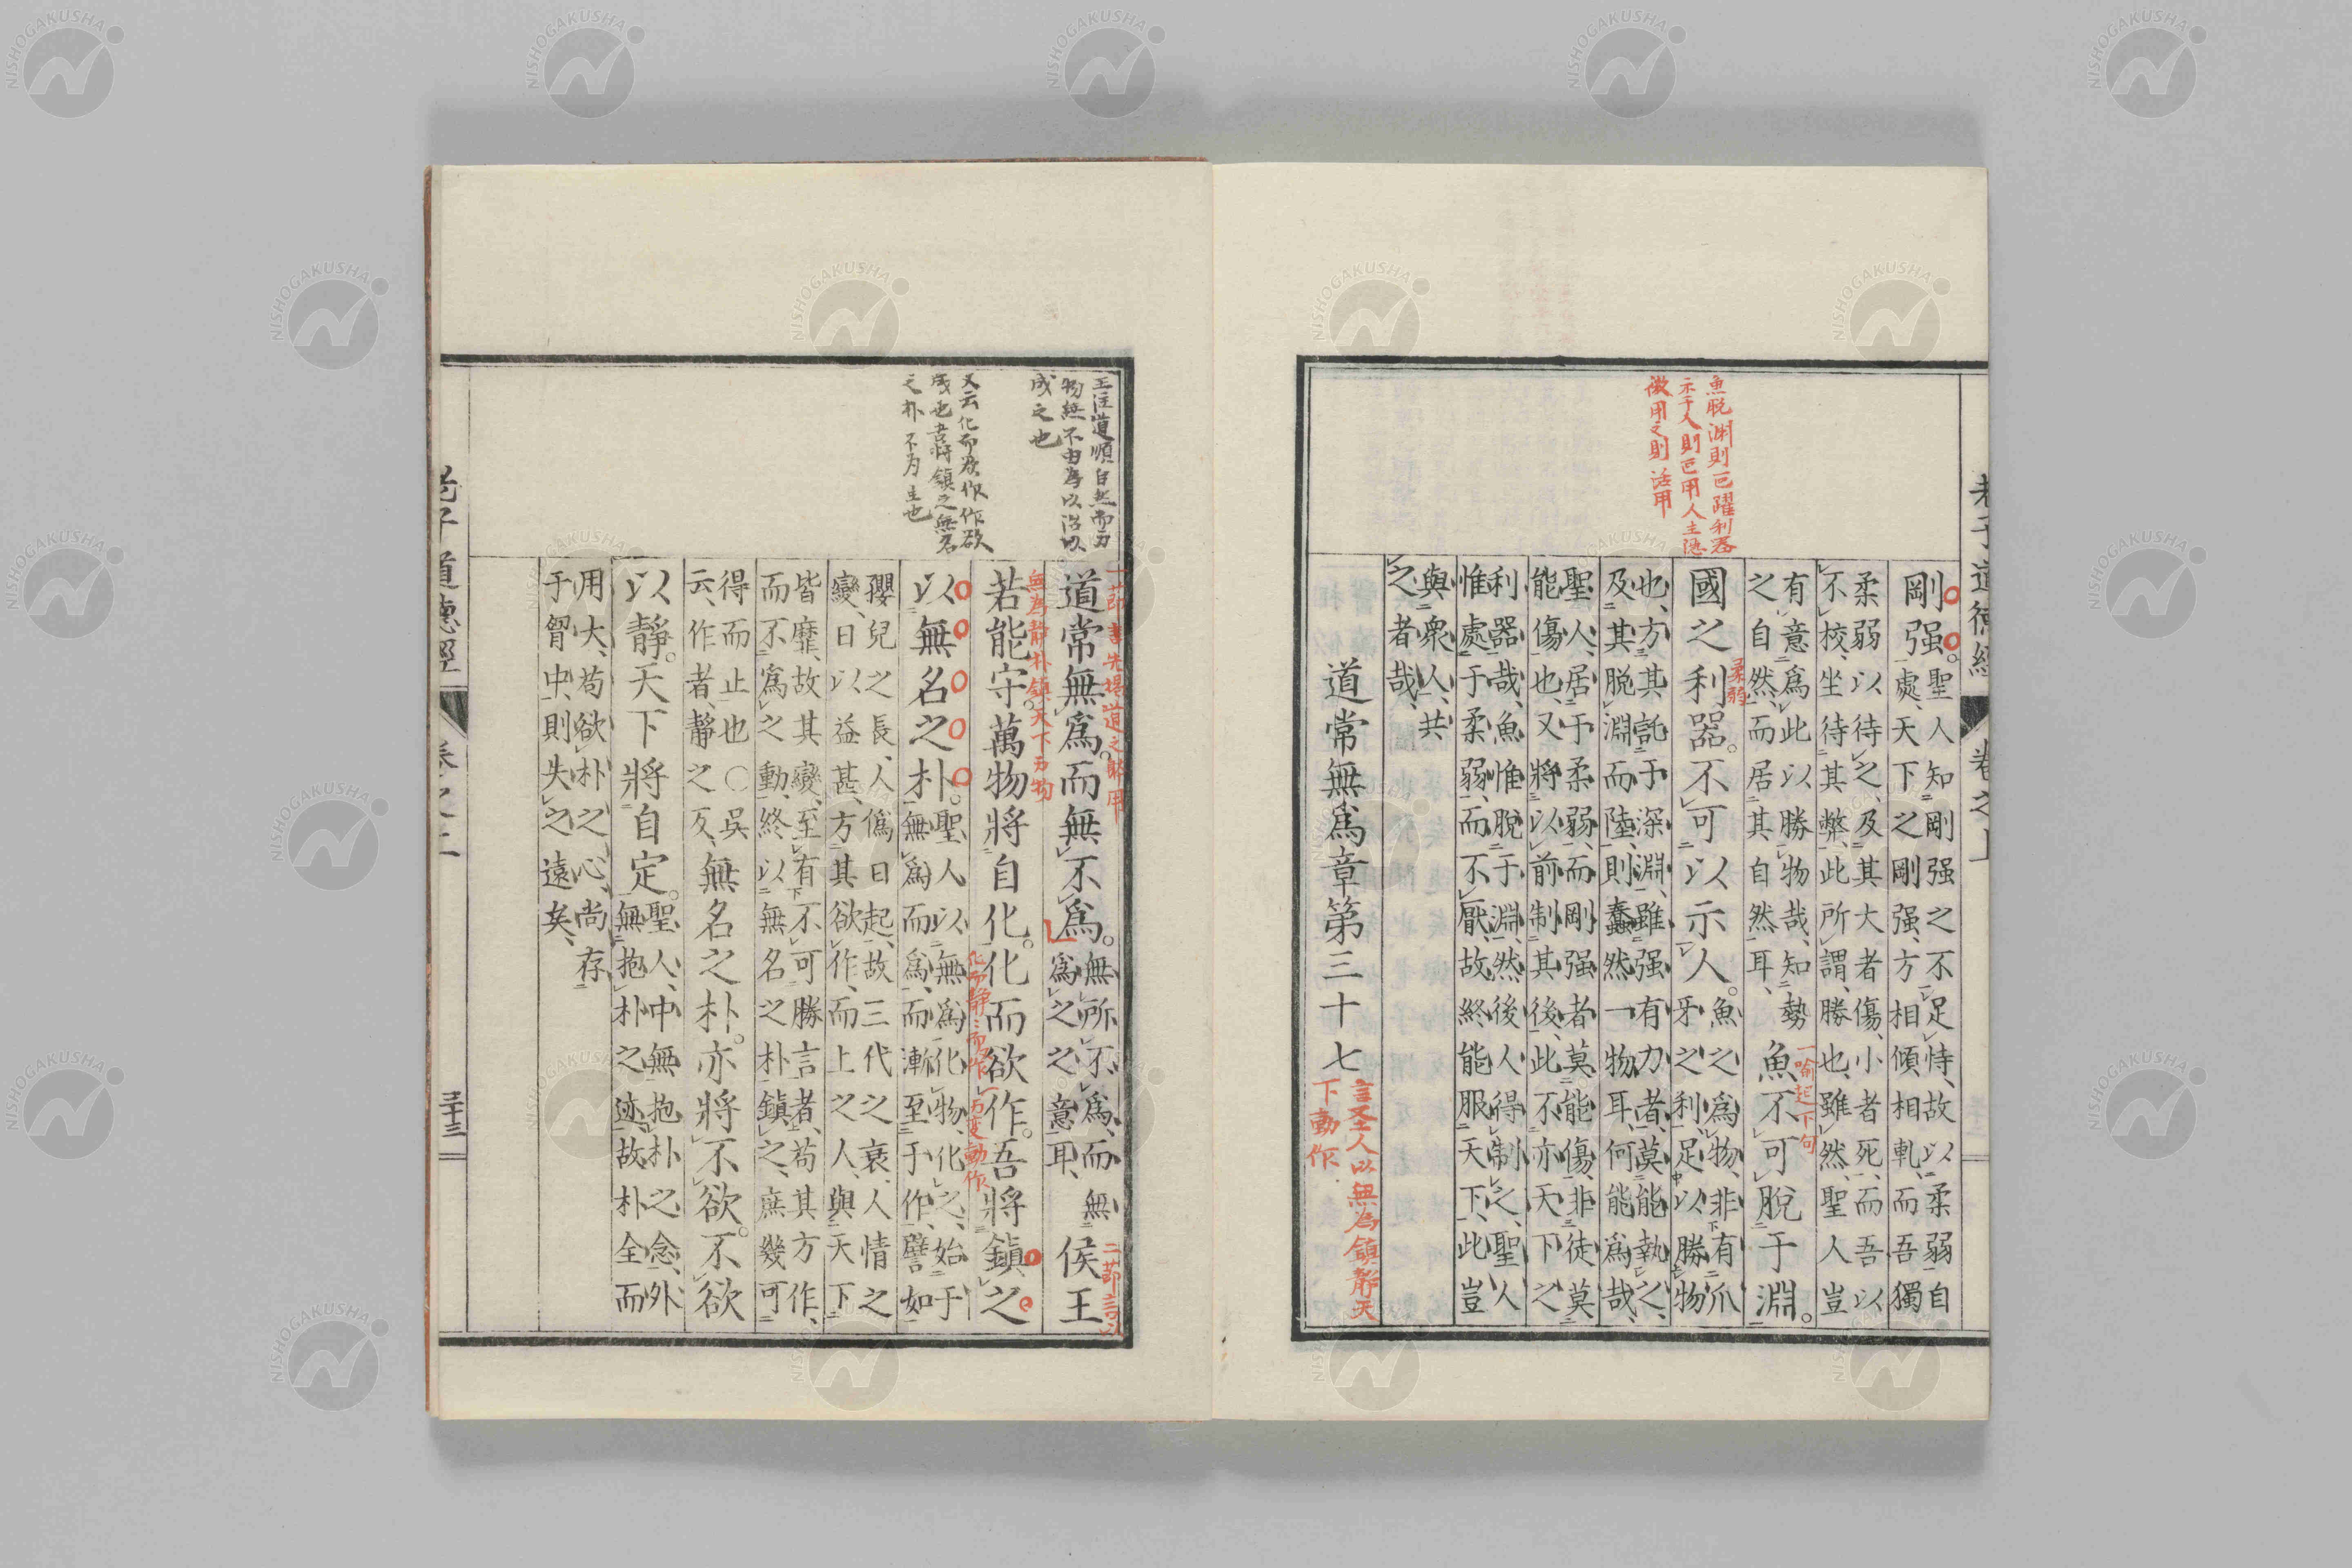 老子道德經
卷之上
魚脱渊則已躍利器
示于人則已用人主
微用之則活用
剛强。聖人知剛强之不足恃、故以柔弱自
處、天下之剛强、方相傾相軋、而吾獨
柔弱以待之、及其大者傷、小者死、而吾以
不校、坐待其弊、此所謂勝也、雖然、聖人豈
有意爲此以勝物哉、知勢
之自然、而居其自然耳、
魚不可脫于淵。
一喻起下句
國之利器。不可以示人。
柔弱
魚之爲物、非有爪
牙之利、足以勝物
也、方其託于深淵、雖强有力者、莫能執之、
及其脱淵而陸、則蠢然一物耳、何能爲哉、
聖人居于柔弱、而剛强者莫能傷、非徒莫
能傷也、又將以前制其後、此不亦天下之
利器哉、魚惟脫于淵、然後人得制之、聖人
惟處于柔弱、而不厭、故終能服天下、此豈
與衆人共
之者哉、
道常無爲章第三十七
言圣人以無為鎮静天
下動作
王注道順自然而万
物無不由為以治以
成之也
又云化而欲作作欲
成也吾將鎮之無名
之朴不为主也
一節
先提道之
道常無爲。而無不爲。
無所不爲、而無
爲之之意耳、
侯王
二節言以
無為静朴鎮天下万物
若能守。萬物將自化。化而欲作。吾將鎮之
化而静
而作
万変動作
以無名之朴。
聖人以無爲化物、化之、始于
無爲而爲、而漸至于作、譬如
孾兒之長、人僞日起、故三代之衰、人情之
變、日以益甚、方其欲作、而上之人、與天下
皆靡、故其變、至有不可勝言者、苟其方作、
而不爲之動、終以無名之朴鎮之、庶幾可
得而止也〇吳
云、作者、靜之反、
無名之朴。亦將不欲。不欲
以靜。天下將自定。
聖人中無抱朴之念、外
無抱朴之迹、故朴全而
用大、苟欲朴之心、尚存
于胷中、則失之遠矣、
老子道德經
卷之上
三十三
NISHOGAKUSHA